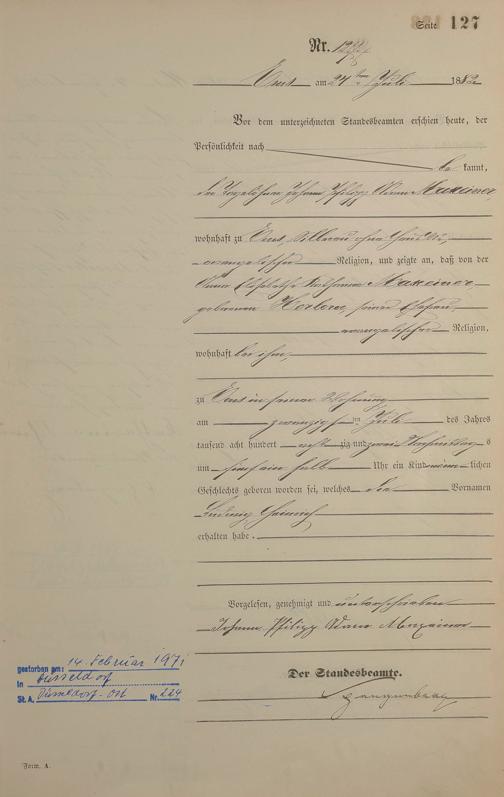 Seite 127
Nr.
Ems am 24ten Juli 1882
Vor dem unterzeichneten Standesbeamten erschien heute, der
Persönlichkeit nach
be kannt,
der Tagelöhner Johann Philipp Maxeiner,
wohnhaft zu Ems,
evangelischer Religion, und zeigte an, daß von der
Anna Elisabethe Maxeiner,
geborenen seiner Ehefrau,
evangelischer Religion,
wohnhaft bei ihm,
zu Ems in seiner Wohnung
am zwanzigsten Juli des Jahres
tausend acht hundert acht zig und zwei Vormittags
um Uhr ein Kind männ lichen
Geschlechts geboren worden sei, welches die Vornamen
Ludwig Heinrich
erhalten habe.
Vorgelesen, genehmigt und unterschrieben
Johann Philipp Adam Maxeiner
Der Standesbeamte.
gestorben am: 14. Februar 1971
in Düsseldorf
St. A. Düsseldorf-Ost Nr. 224
Form. A.